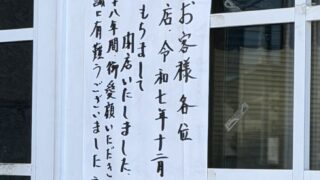 お客様各位
店、令和七年十二月
もちまして
閉店いたしました。
十八年間、御愛顧いただき
誠に有難うございました。